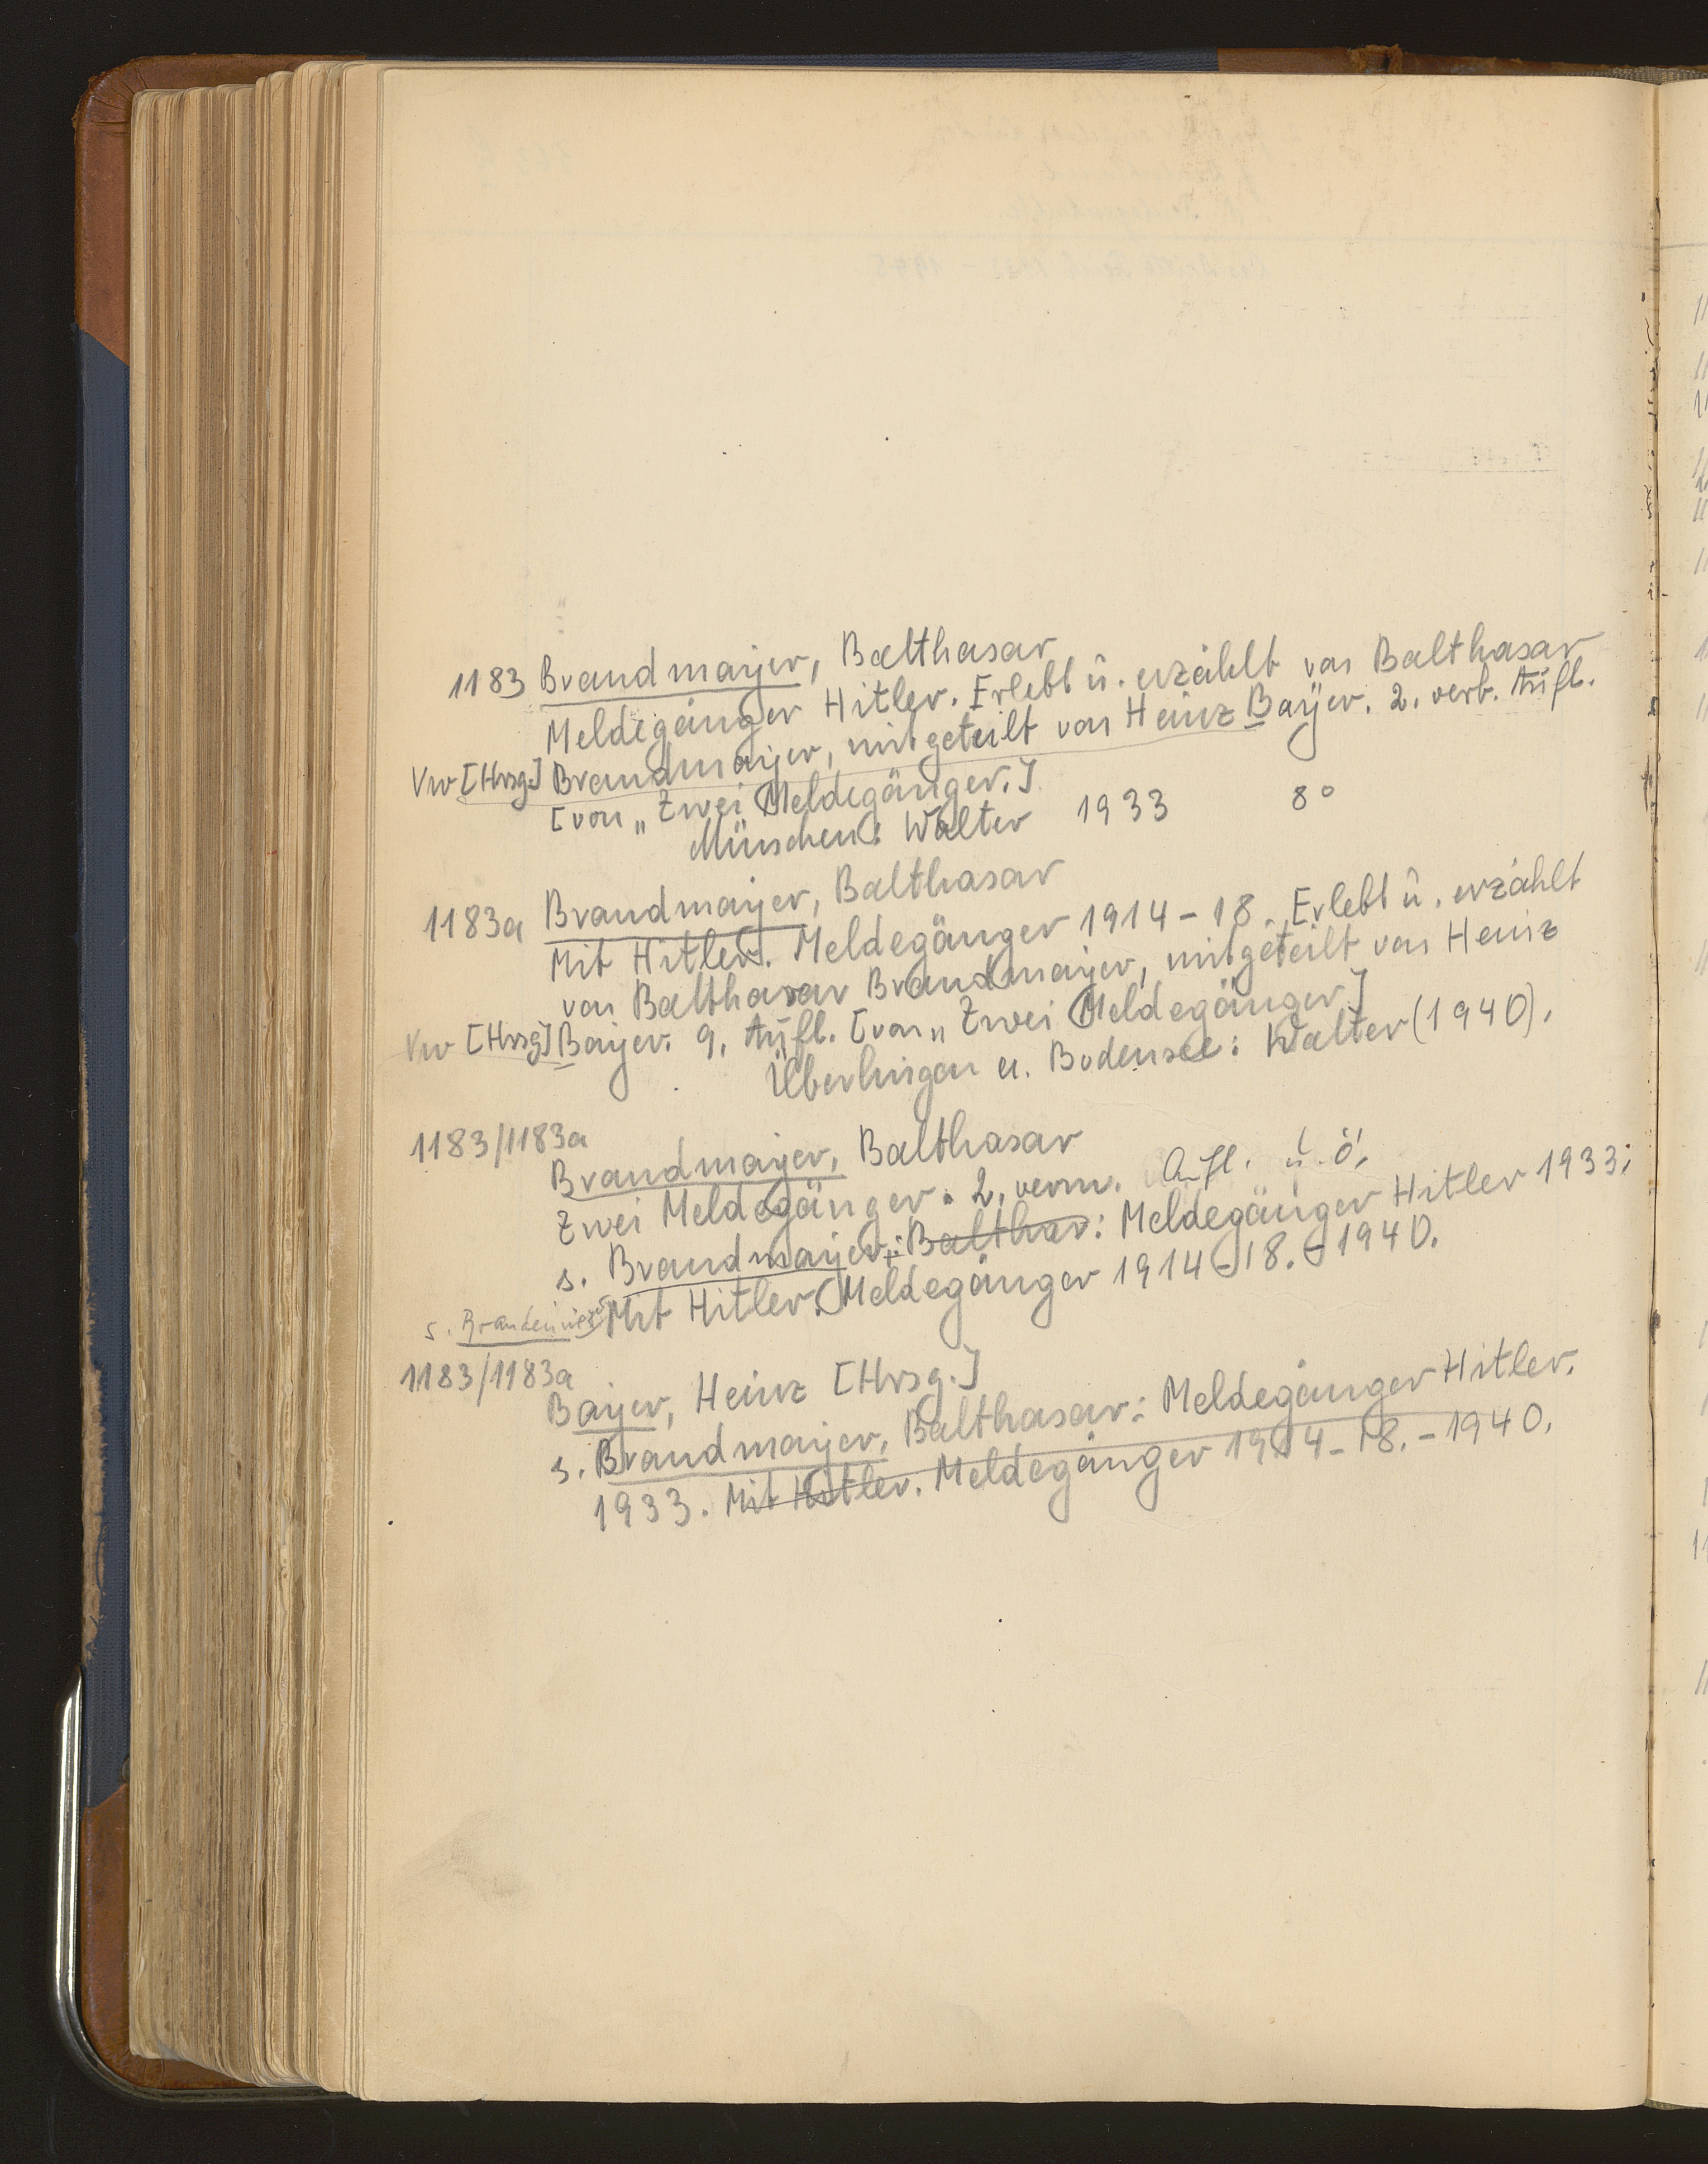 1183 Brandmayer, Balthasar
Meldegänger Hitler. Erlebt u. erzählt von Balthasar
Vw [Hrsg.] Brandmayer, mitgeteilt von Heinz Bayer. 2. verb. Aufl.
[von „Zwei Meldegänger.]
München: Walter 1933 8°
1183a Brandmayer, Balthasar
Mit Hitler. Meldegänger 1914-18. Erlebt u. erzählt
von Balthasar Brandmayer, mitgeteilt von Heinz
Vw [Hrsg] Bayer. 9. Aufl. [von „Zwei Meldegänger]
Überlingen a. Bodensee: Walter (1940).
1183/1183a
Brandmayer, Balthasar
Zwei Meldegänger. 2. verm. Aufl. u. ö.
s. Brandmayer: Balthar: Meldegänger Hitler 1933;
Mit Hitler. Meldegänger 1914-18. - 1940.
s.
1183/1183a
Bayer, Heinz [Hrsg.]
s. Brandmayer, Balthasar: Meldegänger Hitler.
1933. Mit Hitler. Meldegänger 1914-18. - 1940.